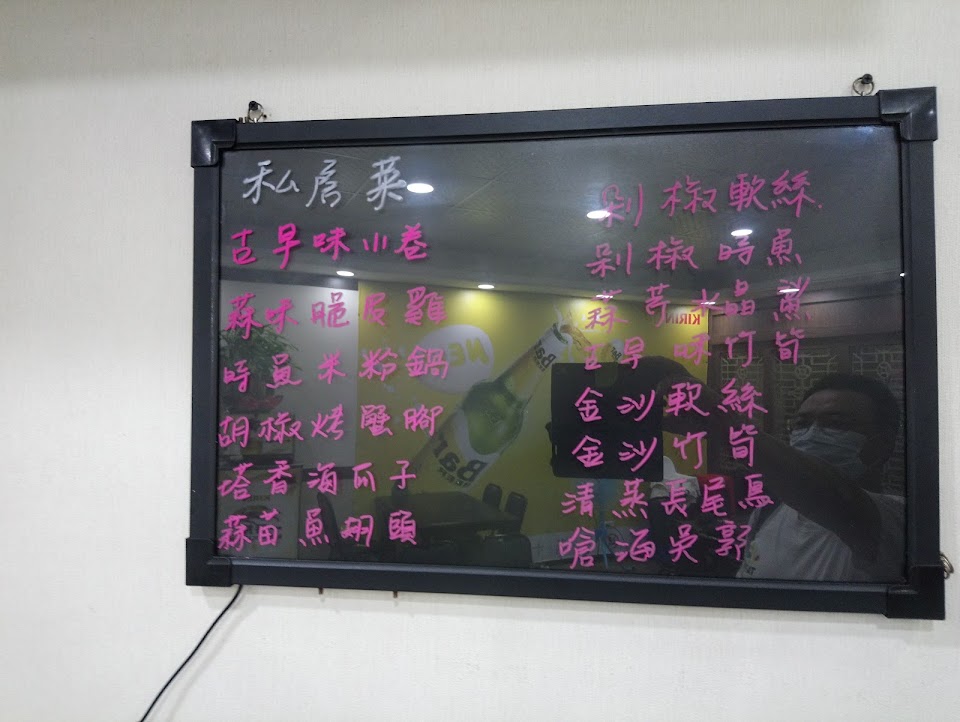 私房菜
古早味小卷
蒜味脆皮雞
時魚米粉鍋
胡椒烤蟹腳
塔香海瓜子
蒜苗魚頭
剁椒軟絲
剁椒時魚
蒜水晶
古早味竹
金沙軟絲
金沙竹
清蒸長尾鳥
嗆海吳郭